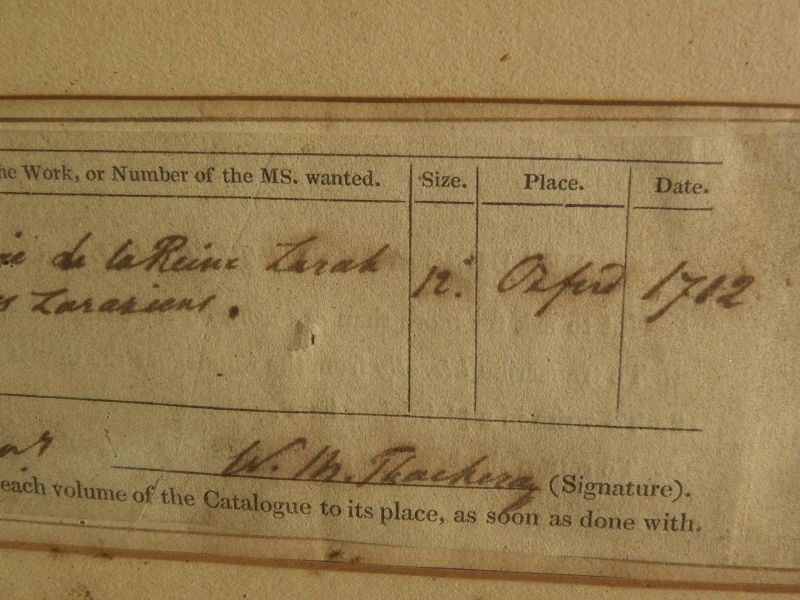 he Work, or Number of the MS. wanted. Size. Place. Date.
de la Reine Zarah 12º. Oxford 1712
Zaraziens.
W. M. Thackeray (Signature).
each volume of the Catalogue to its place, as soon as done with.